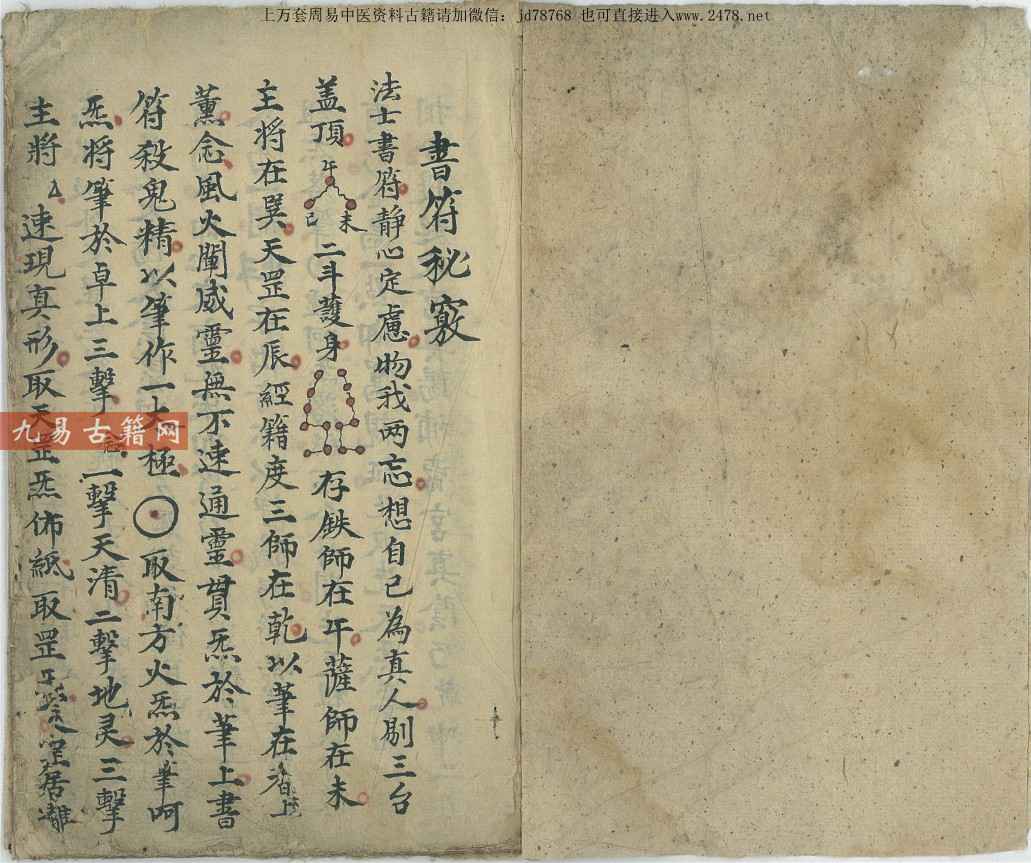 上万套周易中医资料古籍请加微信：jd78768 也可直接进入www.2478.net
書符秘竅
法士書符靜心定慮物我两忘想自己為真人剔三台
盖頂午未巳二斗護身存鉄師在午薩師在未
主将在巽天罡在辰經籍度三師在乾以筆在香上
薰念風火闡威靈無不速通靈貫炁於筆上書
符殺鬼精以筆作一大極取南方火炁於筆呵
炁将筆於卓上三擊一擊天清二擊地灵三擊
主將速現真形取天罡炁佈紙取罡
九易古籍网